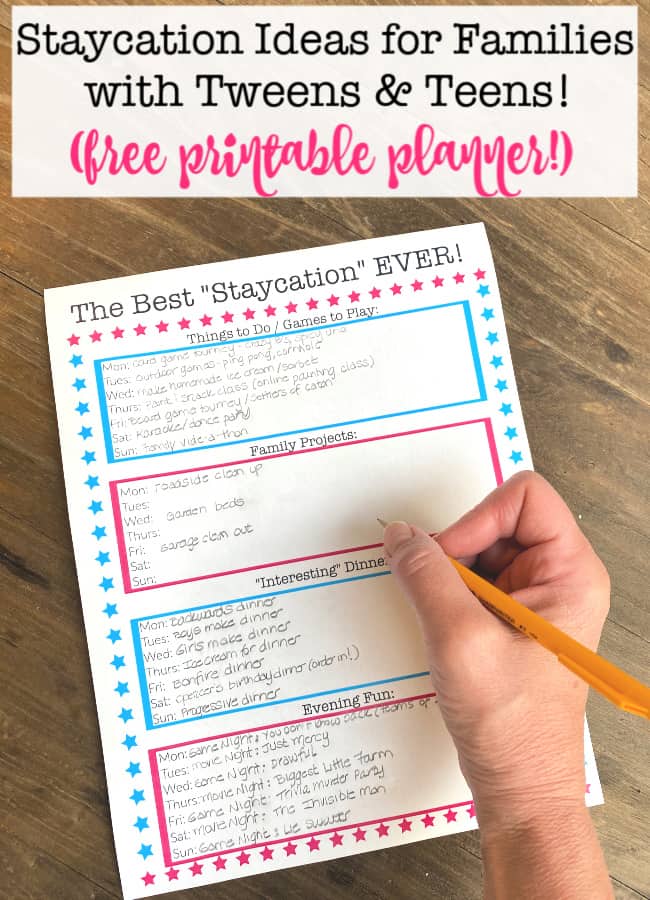 Staycation Ideas for Families
with Tweens & Teens!
(free printable planner!)
The Best "Staycation" EVER!
Things to Do / Games to Play:
Mon: card game tourney - crazy 8s, spicy uno
Tues: outdoor games - ping pong, cornhole
Wed: make homemade ice cream/sorbet
Thurs: Paint & Snack class (online painting class)
Fri: Board game tourney / Settlers of Catan
Sat: Karaoke/dance party
Sun: Family vide-a-thon
Family Projects:
Mon: roadside clean up
Tues:
Wed: Garden beds
Thurs:
Fri: Garage clean out
Sat:
Sun:
"Interesting" Dinne
Mon: Backwards dinner
Tues: Boys make dinner
Wed: Girls make dinner
Thurs: Ice cream for dinner
Fri: Bonfire dinner
Sat: Spencer's birthday dinner (order in!)
Sun: Progessive dinner
Evening Fun:
Mon: Game Night: You Don't Know Jack (teams of
Tues: Movie Night: Just Mercy
Wed: Game Night: Drawful
Thurs: Movie Night: Biggest Little Farm
Fri: Game Night: Trivia Murder Party
Sat: Movie Night: The Invisible Man
Sun: Game Night: Lie Swatter